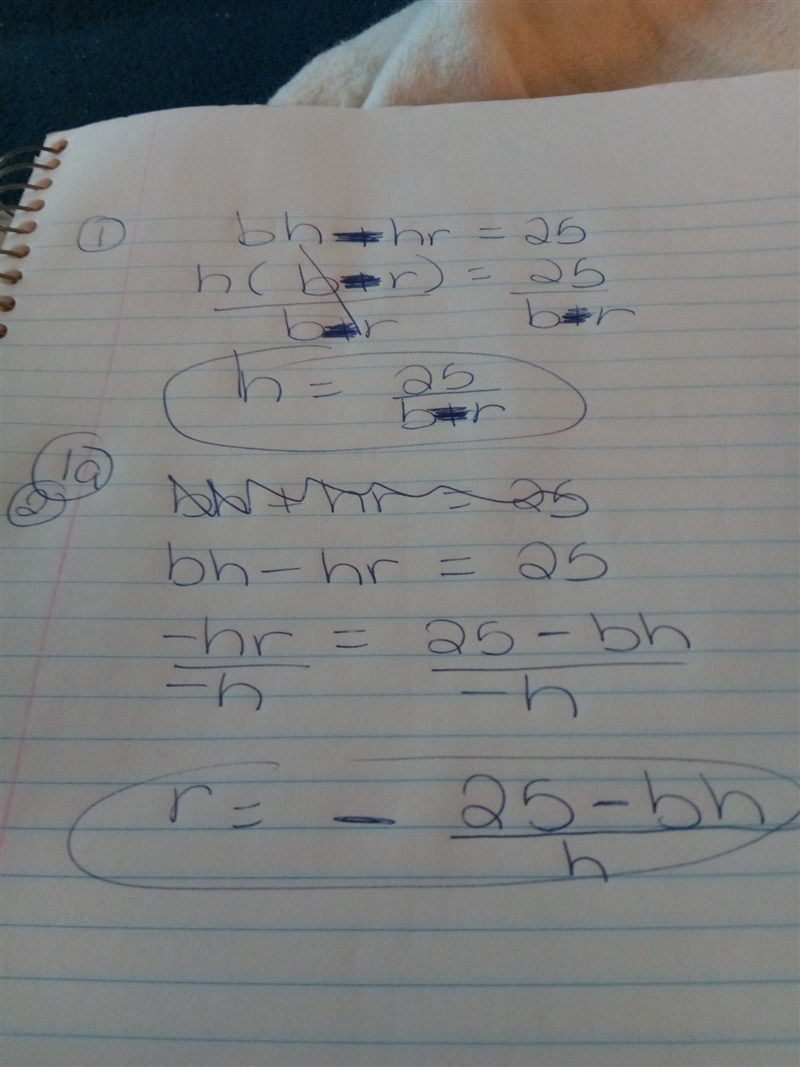 ① bh - hr = 25
h(b-r) = 25
b-r b-r
h = 25
b-r
1a
② bh + hr = 25
bh - hr = 25
-hr = 25 - bh
-h -h
r = - 25 - bh
h